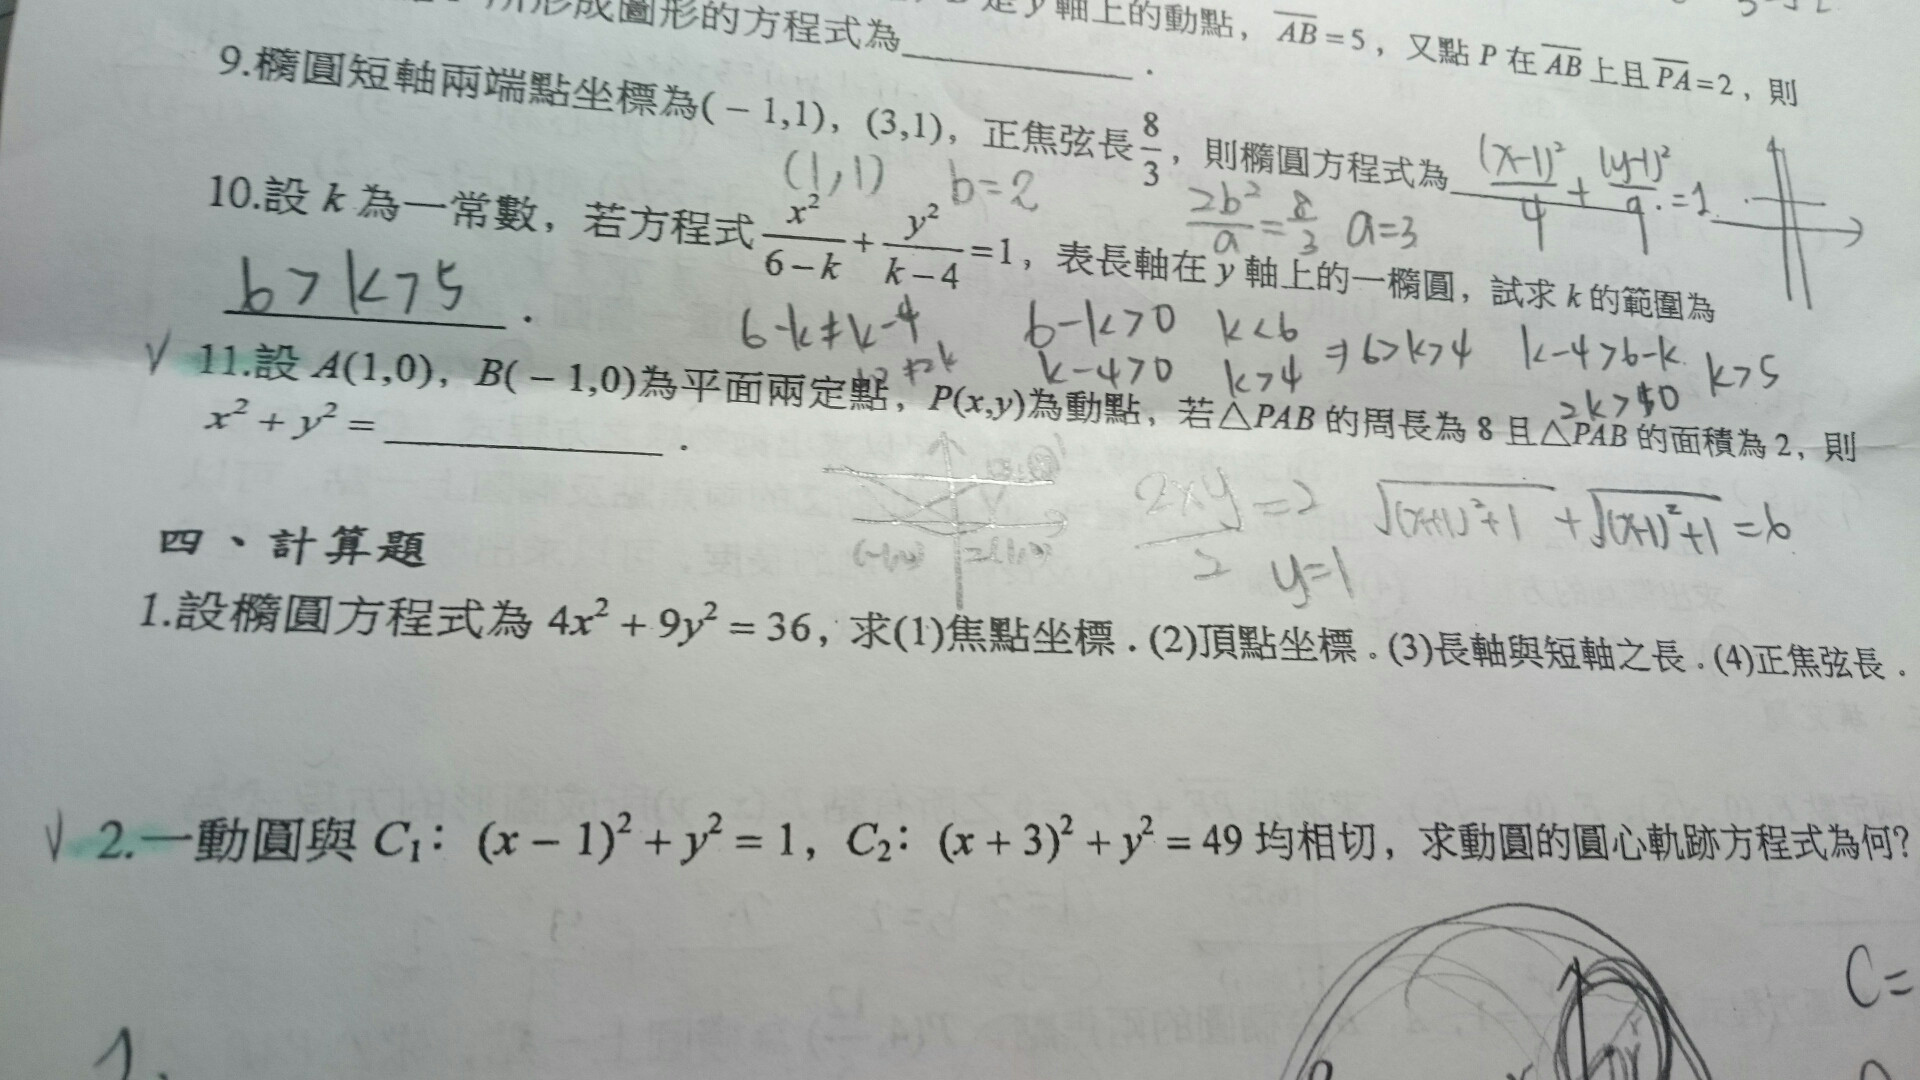 所形成圖形的方程式為
是 y 軸上的動點，AB=5，又點 P 在 AB 上且 PA=2，則
9.橢圓短軸兩端點坐標為(－1,1)，(3,1)，正焦弦長 8/3，則橢圓方程式為 (x-1)²/4 + (y-1)²/9 =1.
(1,1) b=2 2b²/a = 8/3 a=3
10.設 k 為一常數，若方程式 x²/(6－k) + y²/(k－4) =1，表長軸在 y 軸上的一橢圓，試求 k 的範圍為
6>k>5 .
6-k≠k-4 6-k>0 k<6 ⇒ 6>k>4 k-4>6-k k>5
k-4>0 k>4 2k>10
11.設 A(1,0)，B(－1,0)為平面兩定點，P(x,y)為動點，若△PAB 的周長為 8 且△PAB 的面積為 2，則
x² + y² = .
2×y/2 =2 √(x+1)²+1 + √(x-1)²+1 =6
y=1
四、計算題
1.設橢圓方程式為 4x² + 9y² = 36，求(1)焦點坐標．(2)頂點坐標。(3)長軸與短軸之長．(4)正焦弦長．
2.一動圓與 C₁：(x－1)² + y² = 1，C₂：(x+3)² + y² = 49 均相切，求動圓的圓心軌跡方程式為何?
C=
1.